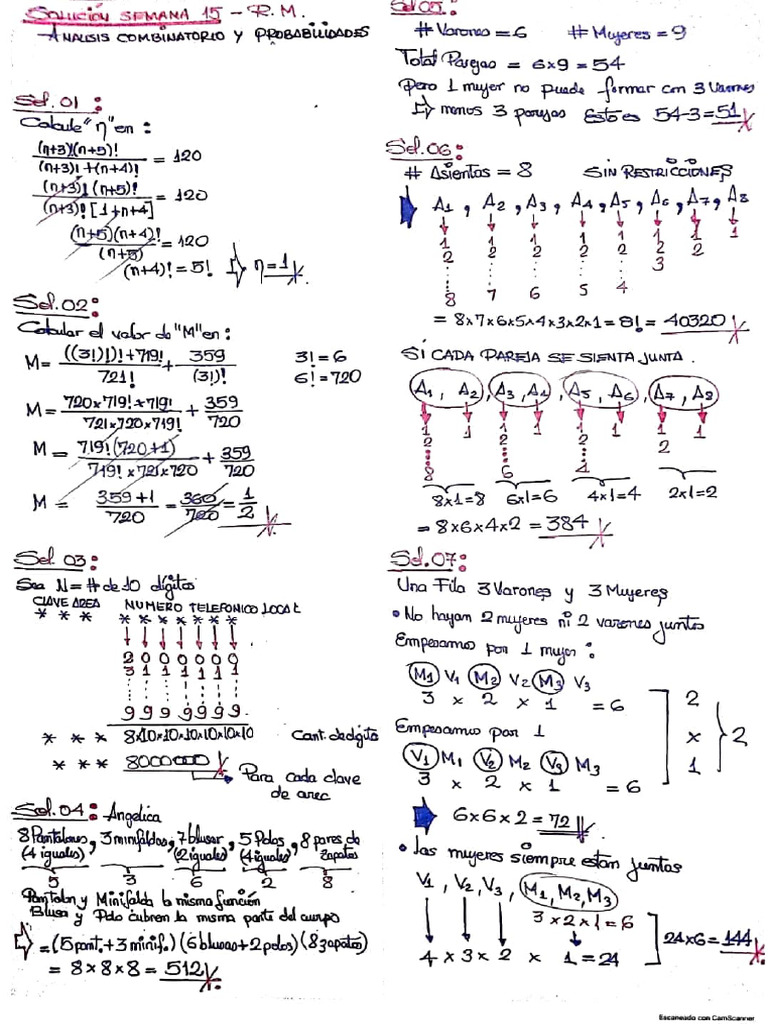 SOLUCIÓN SEMANA 15 - R.M.
ANALISIS COMBINATORIO Y PROBABILIDADES
Sol. 01 :
Calcule "n" en :
(n+3)!(n+5)! / (n+3)!+(n+4)! = 120
(n+3)!(n+5)! / (n+3)! [1+n+4] = 120
(n+5)(n+4)! / (n+5) = 120
(n+4)! = 5! ⇒ n=1
Sol. 02 :
Calcular el valor de "M" en :
M = ((3!)!)!+719! / 721! + 359 / (3!)! 3! = 6
6! = 720
M = 720×719!+719! / 721×720×719! + 359 / 720
M = 719!(720+1) / 719!×721×720 + 359 / 720
M = 359+1 / 720 = 360 / 720 = 1 / 2
Sol. 03 :
Sea N = # de 10 dígitos
CLAVE AREA NUMERO TELEFONICO LOCAL
* * * * * * * * * *
2 0 0 0 0 0 0
3 1 1 1 1 1 1
9 9 9 9 9 9 9
* * * 8×10×10×10×10×10×10 Cant. de digito
* * * 8000000
Para cada clave
de area
Sol. 04 : Angelica
8 Pantalones, 3 minifaldas, 7 blusas, 5 Polos, 8 pares de
(4 iguales) (2 iguales) (4 iguales) zapatos
5 3 6 2 8
Pantalon y Minifalda la misma función
Blusa y Polo cubren la misma parte del cuerpo
⇒ = (5 pant. + 3 minif.) (6 blusas + 2 polos) (8 zapatos)
= 8 × 8 × 8 = 512
Sol 05 :
# Varones = 6 # Mujeres = 9
Total Parejas = 6×9 = 54
Pero 1 mujer no puede formar con 3 Varones
⇒ menos 3 parejas Esto es 54-3 = 51
Sol. 06 :
# Asientos = 8 SIN RESTRICCIONES
A1, A2, A3, A4, A5, A6, A7, A8
1 1 1 1 1 1 1 1
2 2 2 2 2 2 2
3
8 7 6 5 4
= 8×7×6×5×4×3×2×1 = 8! = 40320
SÍ CADA PAREJA SE SIENTA JUNTA.
A1, A2, A3, A4, A5, A6, A7, A8
1 1 1 1 1 1 1 1
2 2 2 2
8 6 4
8×1=8 6×1=6 4×1=4 2×1=2
= 8×6×4×2 = 384
Sol. 07 :
Una Fila 3 Varones y 3 Mujeres
• No hayan 2 mujeres ni 2 varones juntos
Empesamos por 1 mujer :
M1 V1 M2 V2 M3 V3
3 × 2 × 1 = 6
Empesamos por 1
V1 M1 V2 M2 V3 M3
3 × 2 × 1 = 6
2
×
1
2
6×6×2 = 72
• Las mujeres siempre estan juntas
V1, V2, V3, M1, M2, M3
3×2×1=6
4 × 3 × 2 × 1 = 24
24×6 = 144
Escaneado con CamScanner